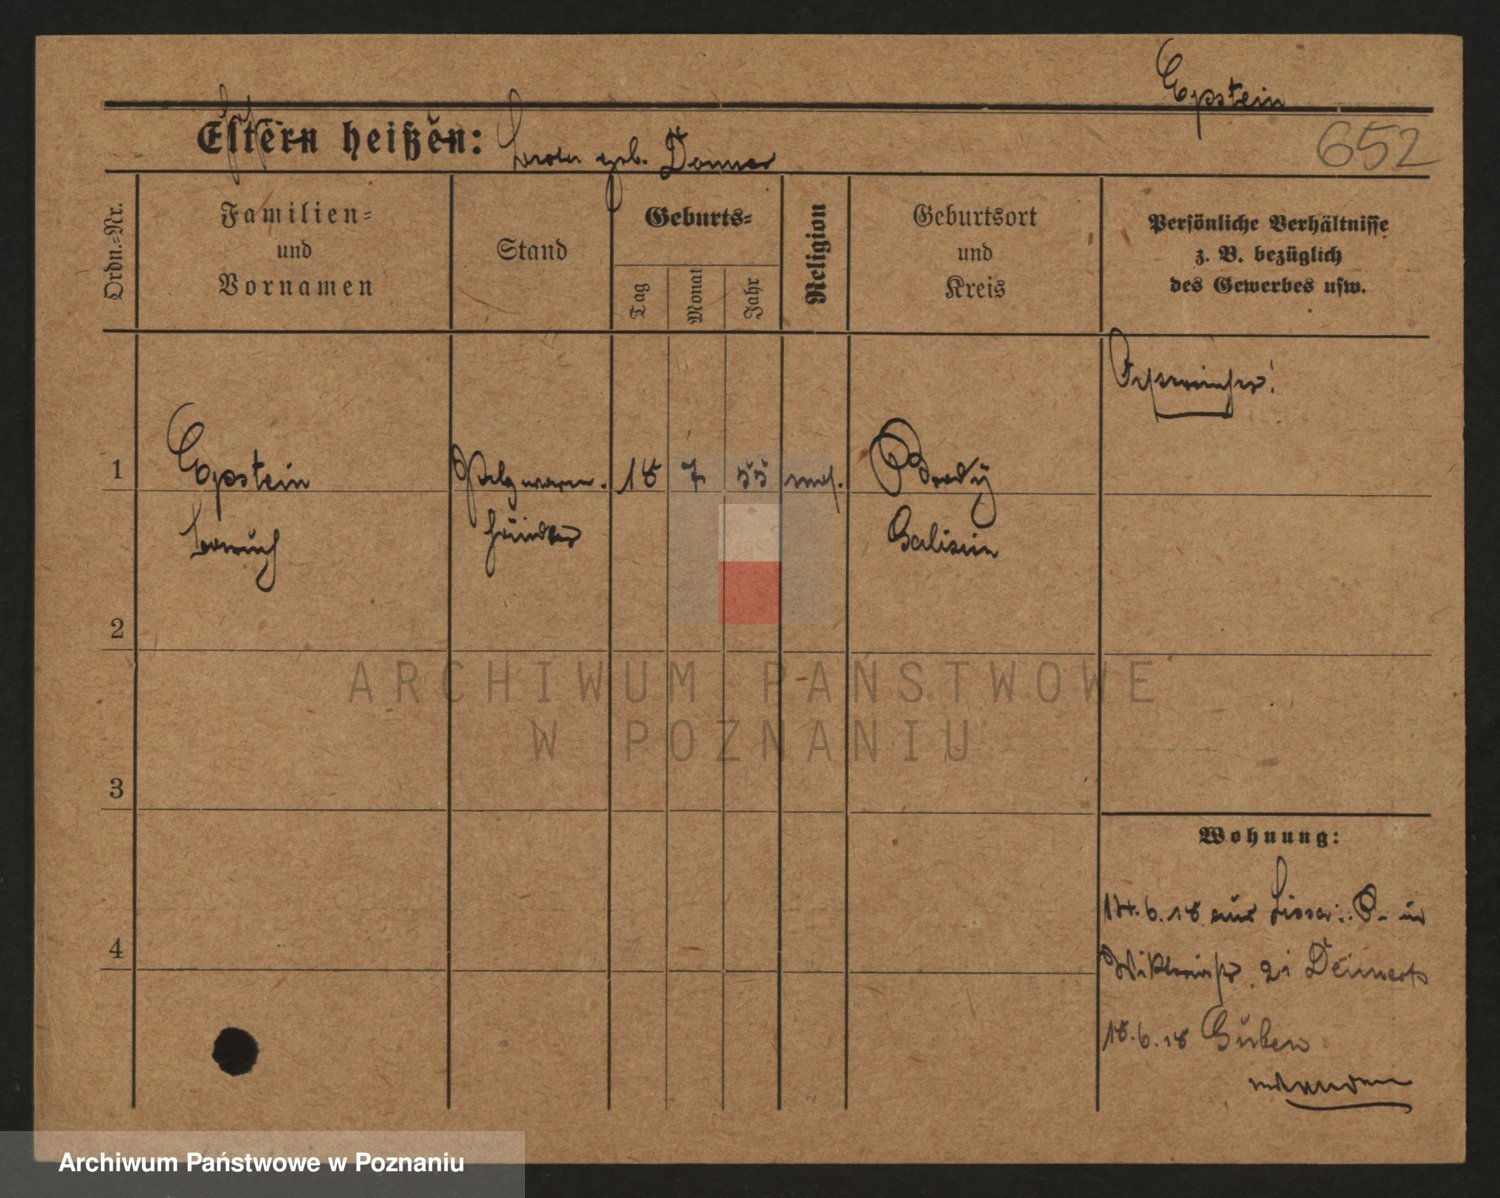 Epstein
652
Eltern heißen: geb. Donner
Ordn.=Nr.
Familien=
und
Vornamen
Stand
Geburts=
Tag
Monat
Jahr
Religion
Geburtsort
und
Kreis
Persönliche Verhältnisse
z. B. bezüglich
des Gewerbes usw.
1
Epstein
Pelzwaren.
18 7 55
mos.
Brody
händler
Galizien
2
3
Wohnung:
14.6.18 aus Lissa i. P. in
4
21
18.6.18 Guben
ARCHIWUM PAŃSTWOWE
W POZNANIU
Archiwum Państwowe w Poznaniu